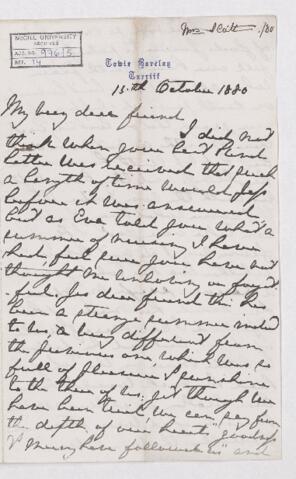 Mrs Scott /80
McGILL UNIVERSITY
ARCHIVES
ACC. NO. 976/5
REF. 14
Towie Barclay
Turriff
13th October 1880
My very dear friend
I did not
think when your last kind
letter was received that such
a length of time would pass
before it was answered
but as Eva told you what a
summer of nursing I have
had, feel sure you have not
thought me unloving or forget
ful, Yes dear friend this has
been a strange summer indeed
to us, a very different from
the previous one, which was so
full of pleasure & sunshine
to the three of us, yet though we
have been tried we can say from
the depth of our hearts, "goodness
& mercy have followed us" and